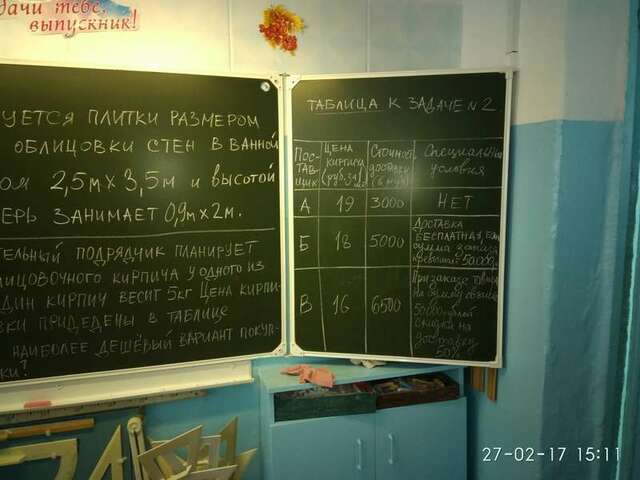 дачи тебе,
выпускник!
УЕТСЯ ПЛИТКИ РАЗМЕРОМ
ОБЛИЦОВКИ СТЕН В ВАННОЙ
ОМ 2,5м X 3,5м и ВЫСОТОЙ
ЕРЬ ЗАНИМАЕТ 0,9м X 2м.
ТЕЛЬНЫЙ ПОДРЯДЧИК ПЛАНИРУЕТ
ЛИЦОВОЧНОГО КИРПИЧА У ОДНОГО ИЗ
ДИН КИРПИЧ ВЕСИТ 5кг ЦЕНА КИРПИ-
ВКИ ПРИДЕДЕНЫ В ТАБЛИЦЕ
НАИБОЛЕЕ ДЕШЁВЫЙ ВАРИАНТ ПОКУП-
КИ?
ТАБЛИЦА К ЗАДАЧЕ N2
ПОС-ТАВ-ЩИК ЦЕНА КИРПИЧА (руб. за шт) СТОИМОСТЬ доставки СПЕЦИАЛЬНЫЕ условия
А 19 3000 НЕТ
Б 18 5000 ДОСТАВКА БЕСПЛАТНАЯ, если сумма заказа превысит 50000
В 16 6500 При заказе товара на сумму свыше 50000 рублей скидка на доставку 50%
27-02-17 15:11